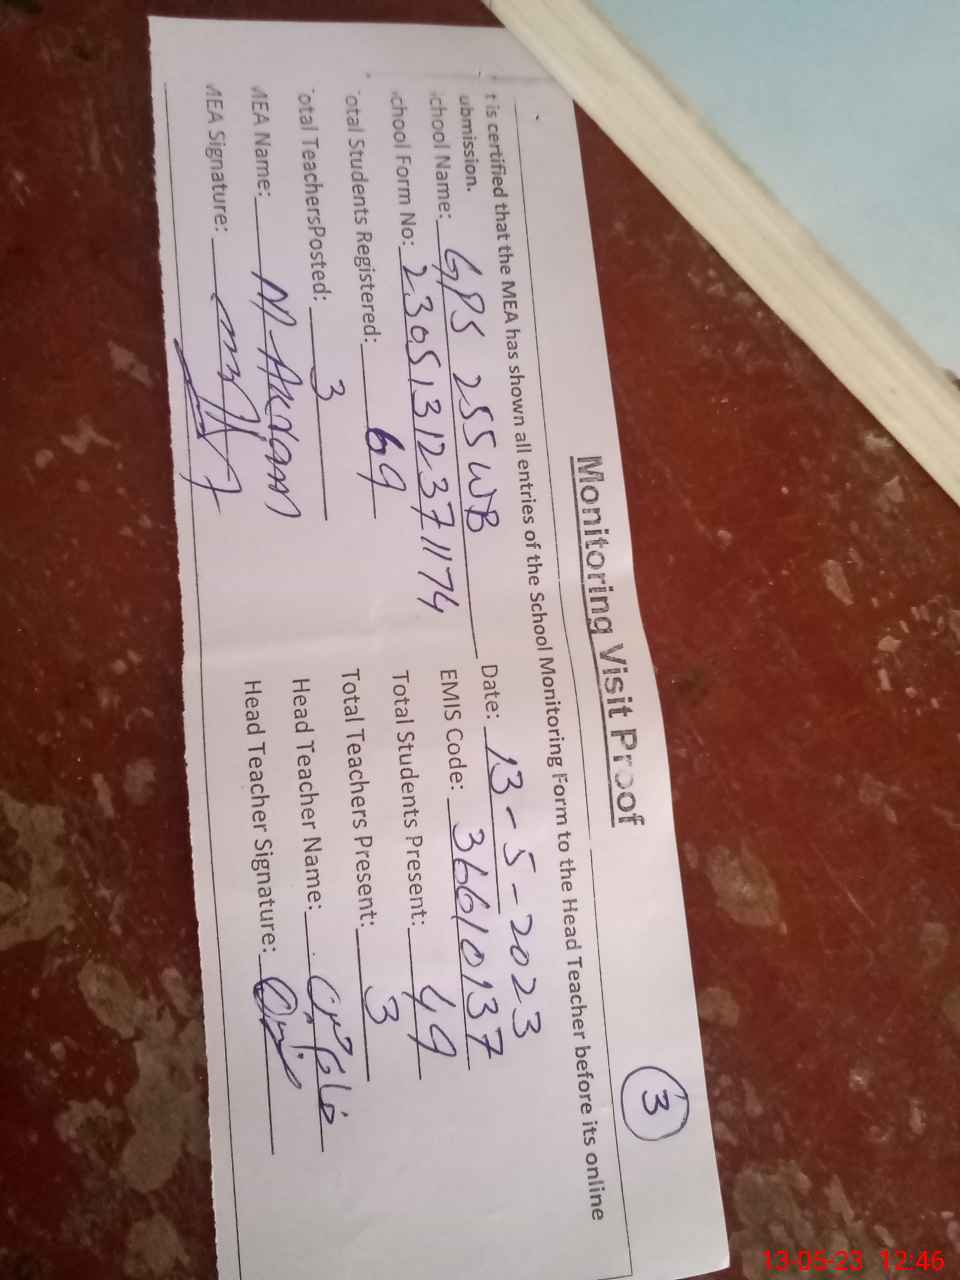 3
Monitoring Visit Proof
t is certified that the MEA has shown all entries of the School Monitoring Form to the Head Teacher before its online
ubmission.
chool Name: GPS 255 WB Date: 13-5-2023
chool Form No: 23051312371174 EMIS Code: 36610137
otal Students Registered: 69 Total Students Present: 49
otal TeachersPosted: 3 Total Teachers Present: 3
MEA Name: M Akram Head Teacher Name:
MEA Signature: Head Teacher Signature:
13-05-23 12:46